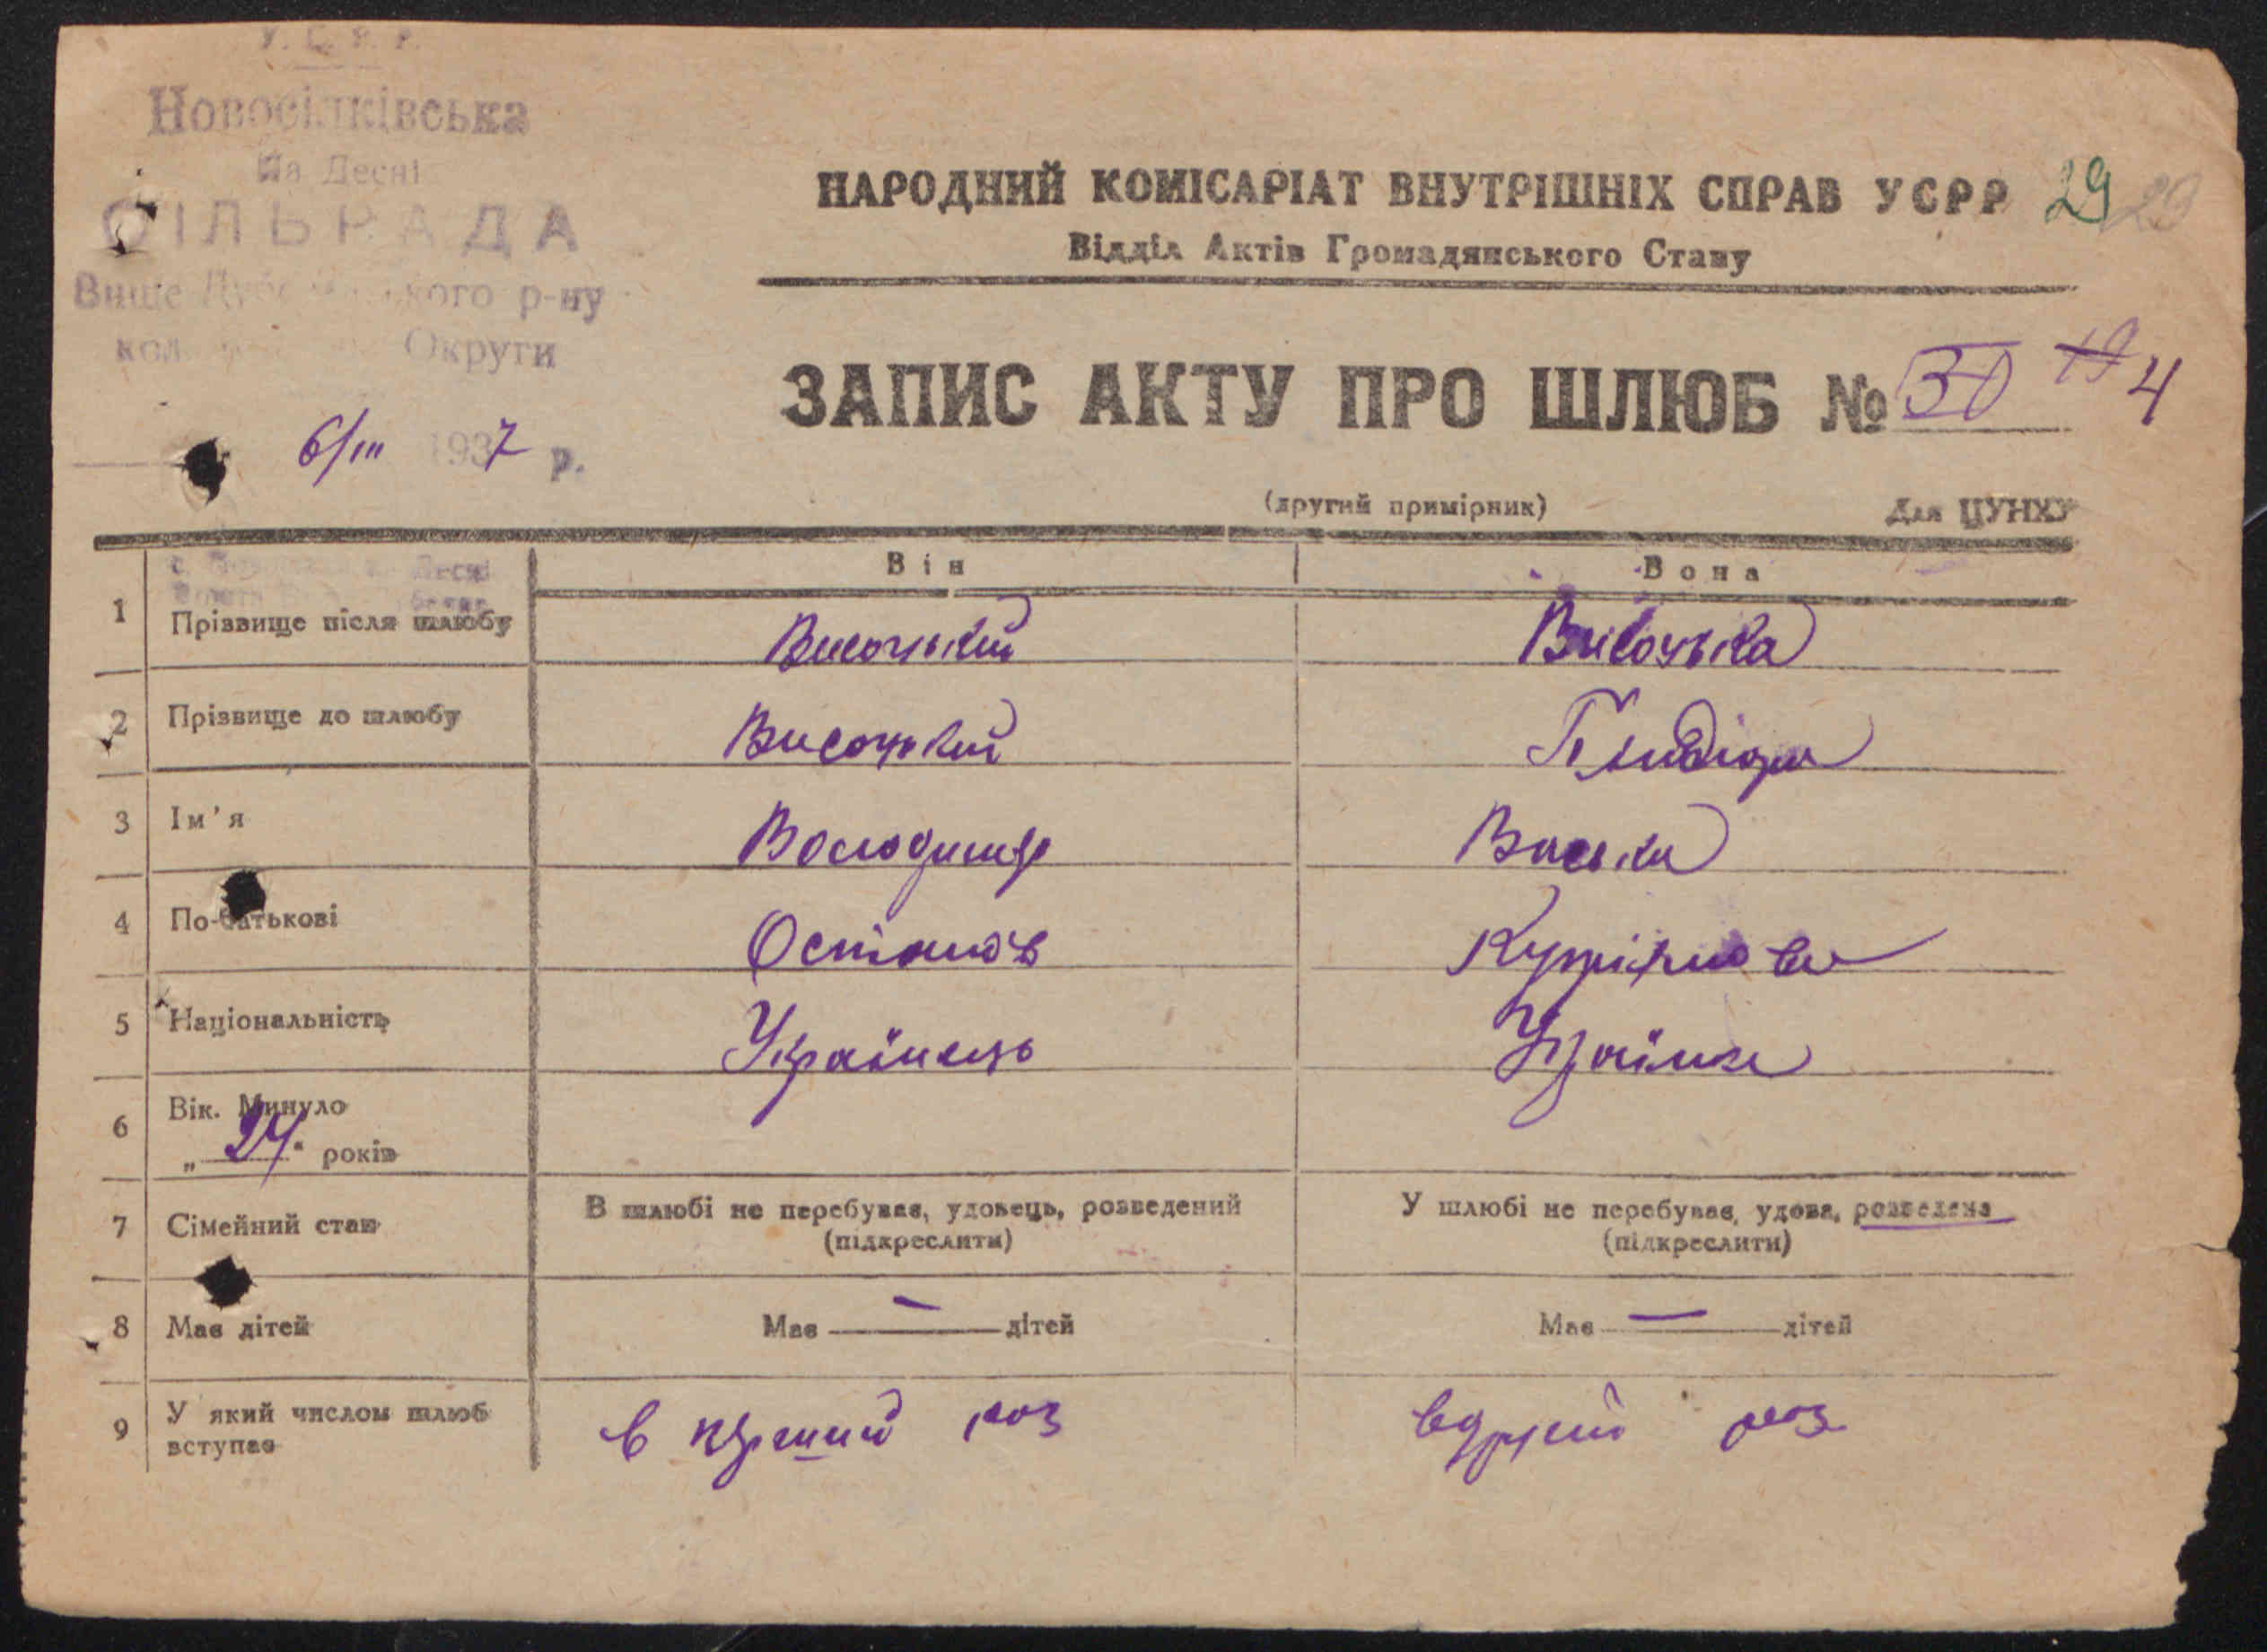 У. С. Р. Р.
Новосілківська
На Десні
СІЛЬРАДА
Вище Дуб ького р-ну
Округи
6/III 1937 р.
НАРОДНИЙ КОМІСАРІАТ ВНУТРІШНІХ СПРАВ УСРР 29 29
Відділ Актів Громадянського Стану
ЗАПИС АКТУ ПРО ШЛЮБ № 30 19 4
(другий примірник) Для ЦУНХУ
Він Вона
1 Прізвище після шлюбу Висоцький Висоцька
2 Прізвище до шлюбу Висоцький
3 Ім'я Володимир
4 По-батькові Остапов
5 Національність Українець Українка
6 Вік. Минуло
„ 24 " років
7 Сімейний стан В шлюбі не перебуває, удовець, розведений У шлюбі не перебуває, удова, розведена
(підкреслити) (підкреслити)
8 Має дітей Має — дітей Має — дітей
9 У який числом шлюб вступає в перший раз вдругий раз